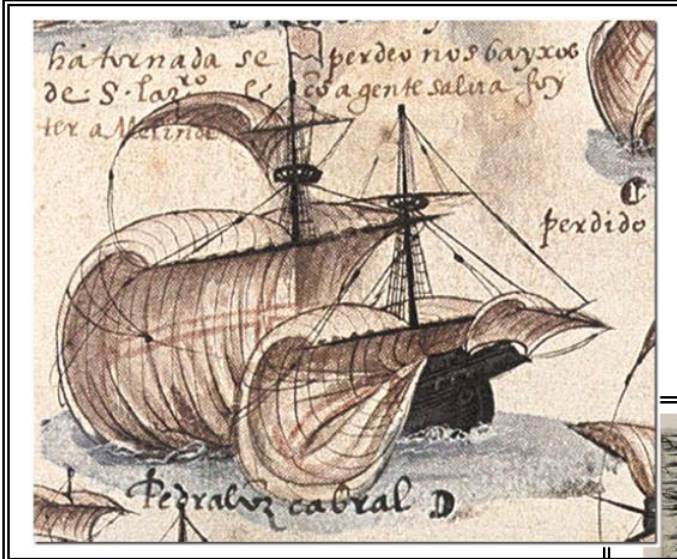 há tornada se perdeo nos bayxos
de S. lazro cõ a gente salva foy
ter a Melinde
perdido
Pedralvz cabral D